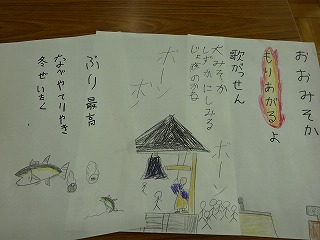 おおみそか
もりあがるよ
歌がっせん
大みそか
しずかにしみる
じょ夜のかね
ボーン
ボーン
ボーン
ぶり最高
なべやてりやき
冬せいかく